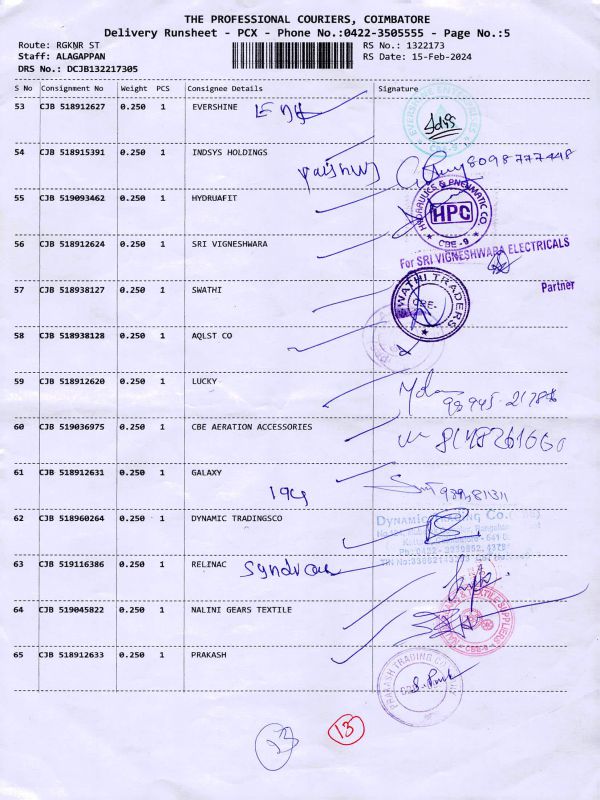 THE PROFESSIONAL COURIERS, COIMBATORE
Delivery Runsheet - PCX - Phone No.:0422-3505555 - Page No.:5
Route: RGKNR ST RS No.: 1322173
Staff: ALAGAPPAN RS Date: 15-Feb-2024
DRS No.: DCJB132217305
S No Consignment No Weight PCS Consignee Details Signature
53 CJB 518912627 0.250 1 EVERSHINE
54 CJB 518915391 0.250 1 INDSYS HOLDINGS
8098777448
55 CJB 519093462 0.250 1 HYDRUAFIT
HYDRAULICS & PNEUMATIC CO
HPC
CBE-9
56 CJB 518912624 0.250 1 SRI VIGNESHWARA
For SRI VIGNESHWARA ELECTRICALS
Partner
57 CJB 518938127 0.250 1 SWATHI
SWATHI TRADERS
CBE-
58 CJB 518938128 0.250 1 AQLST CO
59 CJB 518912620 0.250 1 LUCKY
60 CJB 519036975 0.250 1 CBE AERATION ACCESSORIES
61 CJB 518912631 0.250 1 GALAXY
62 CJB 518960264 0.250 1 DYNAMIC TRADINGSCO
63 CJB 519116386 0.250 1 RELINAC
64 CJB 519045822 0.250 1 NALINI GEARS TEXTILE
65 CJB 518912633 0.250 1 PRAKASH
PRAKASH TRADING COMPANY
23
13